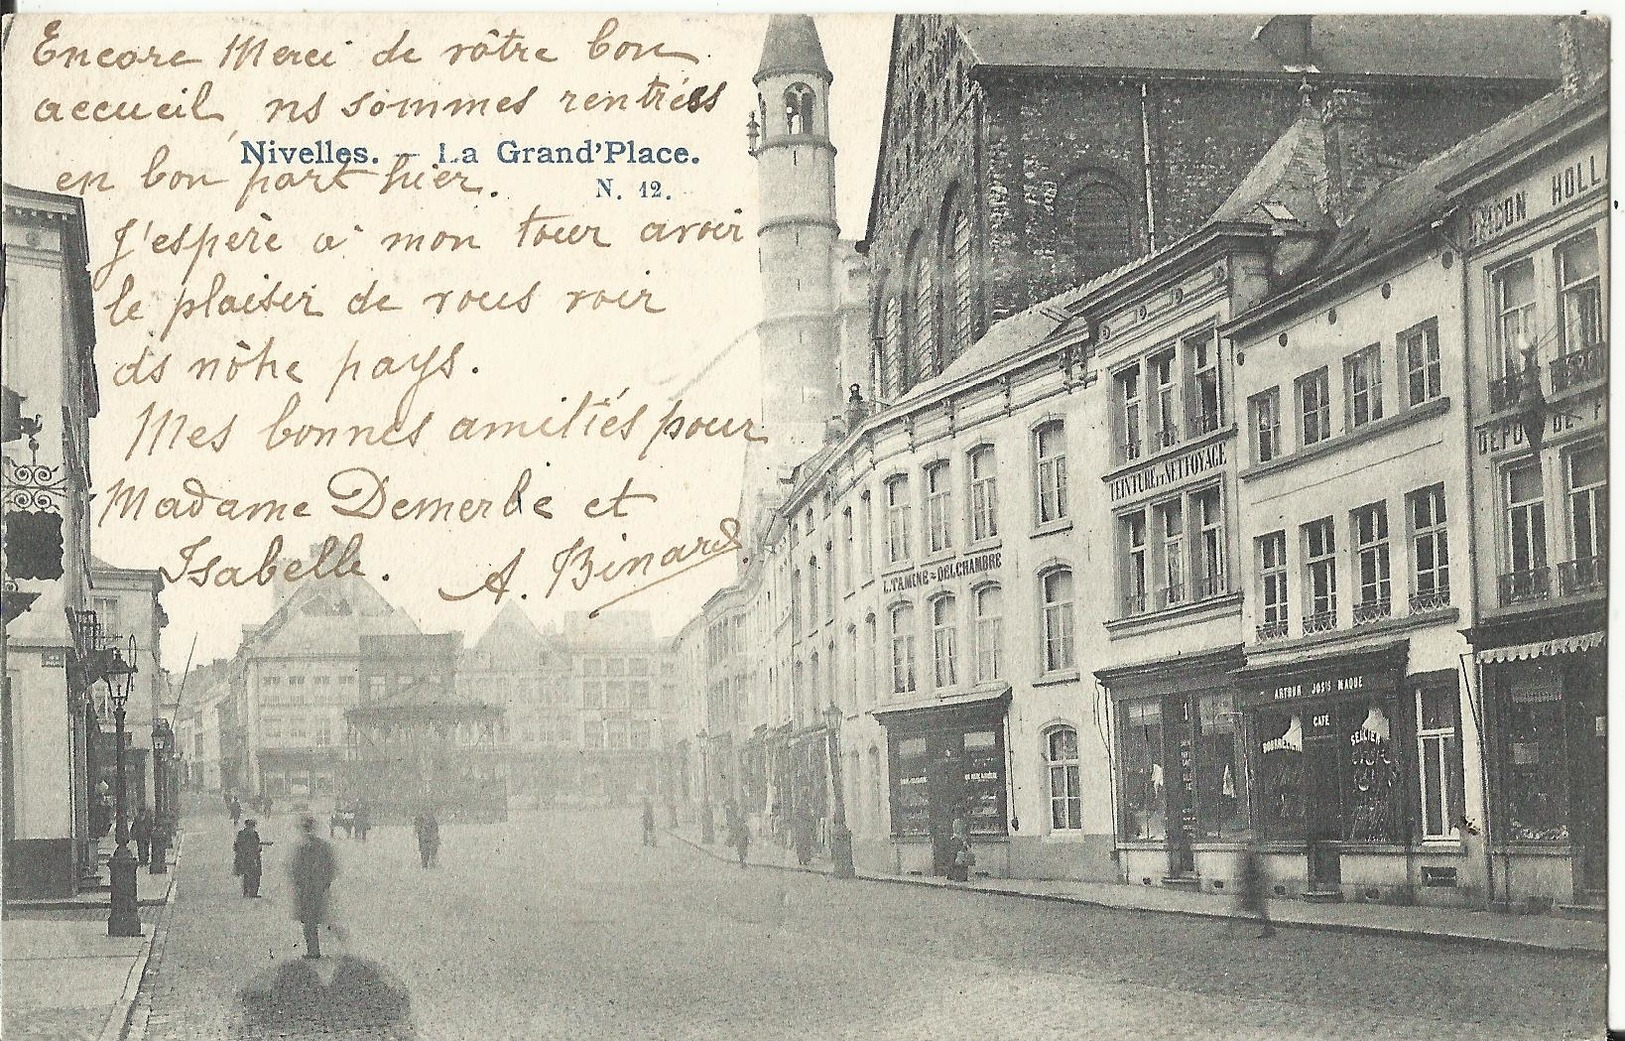 Encore Merci de vôtre bon
accueil, ns sommes rentrées
Nivelles. – La Grand'Place.
en bon port hier.
N. 12.
J'espère à mon tour avoir
le plaisir de vous voir
ds nôtre pays.
Mes bonnes amitiés pour
Madame Demerbe et
Isabelle.
A. Binard.
HOLL
DEPOT DE
TEINTURE ET NETTOYAGE
L. TAMINE=DELCHAMBRE
ARTHUR JOS'S MAQUE
CAFÉ
BOURRELIER
SELLIER